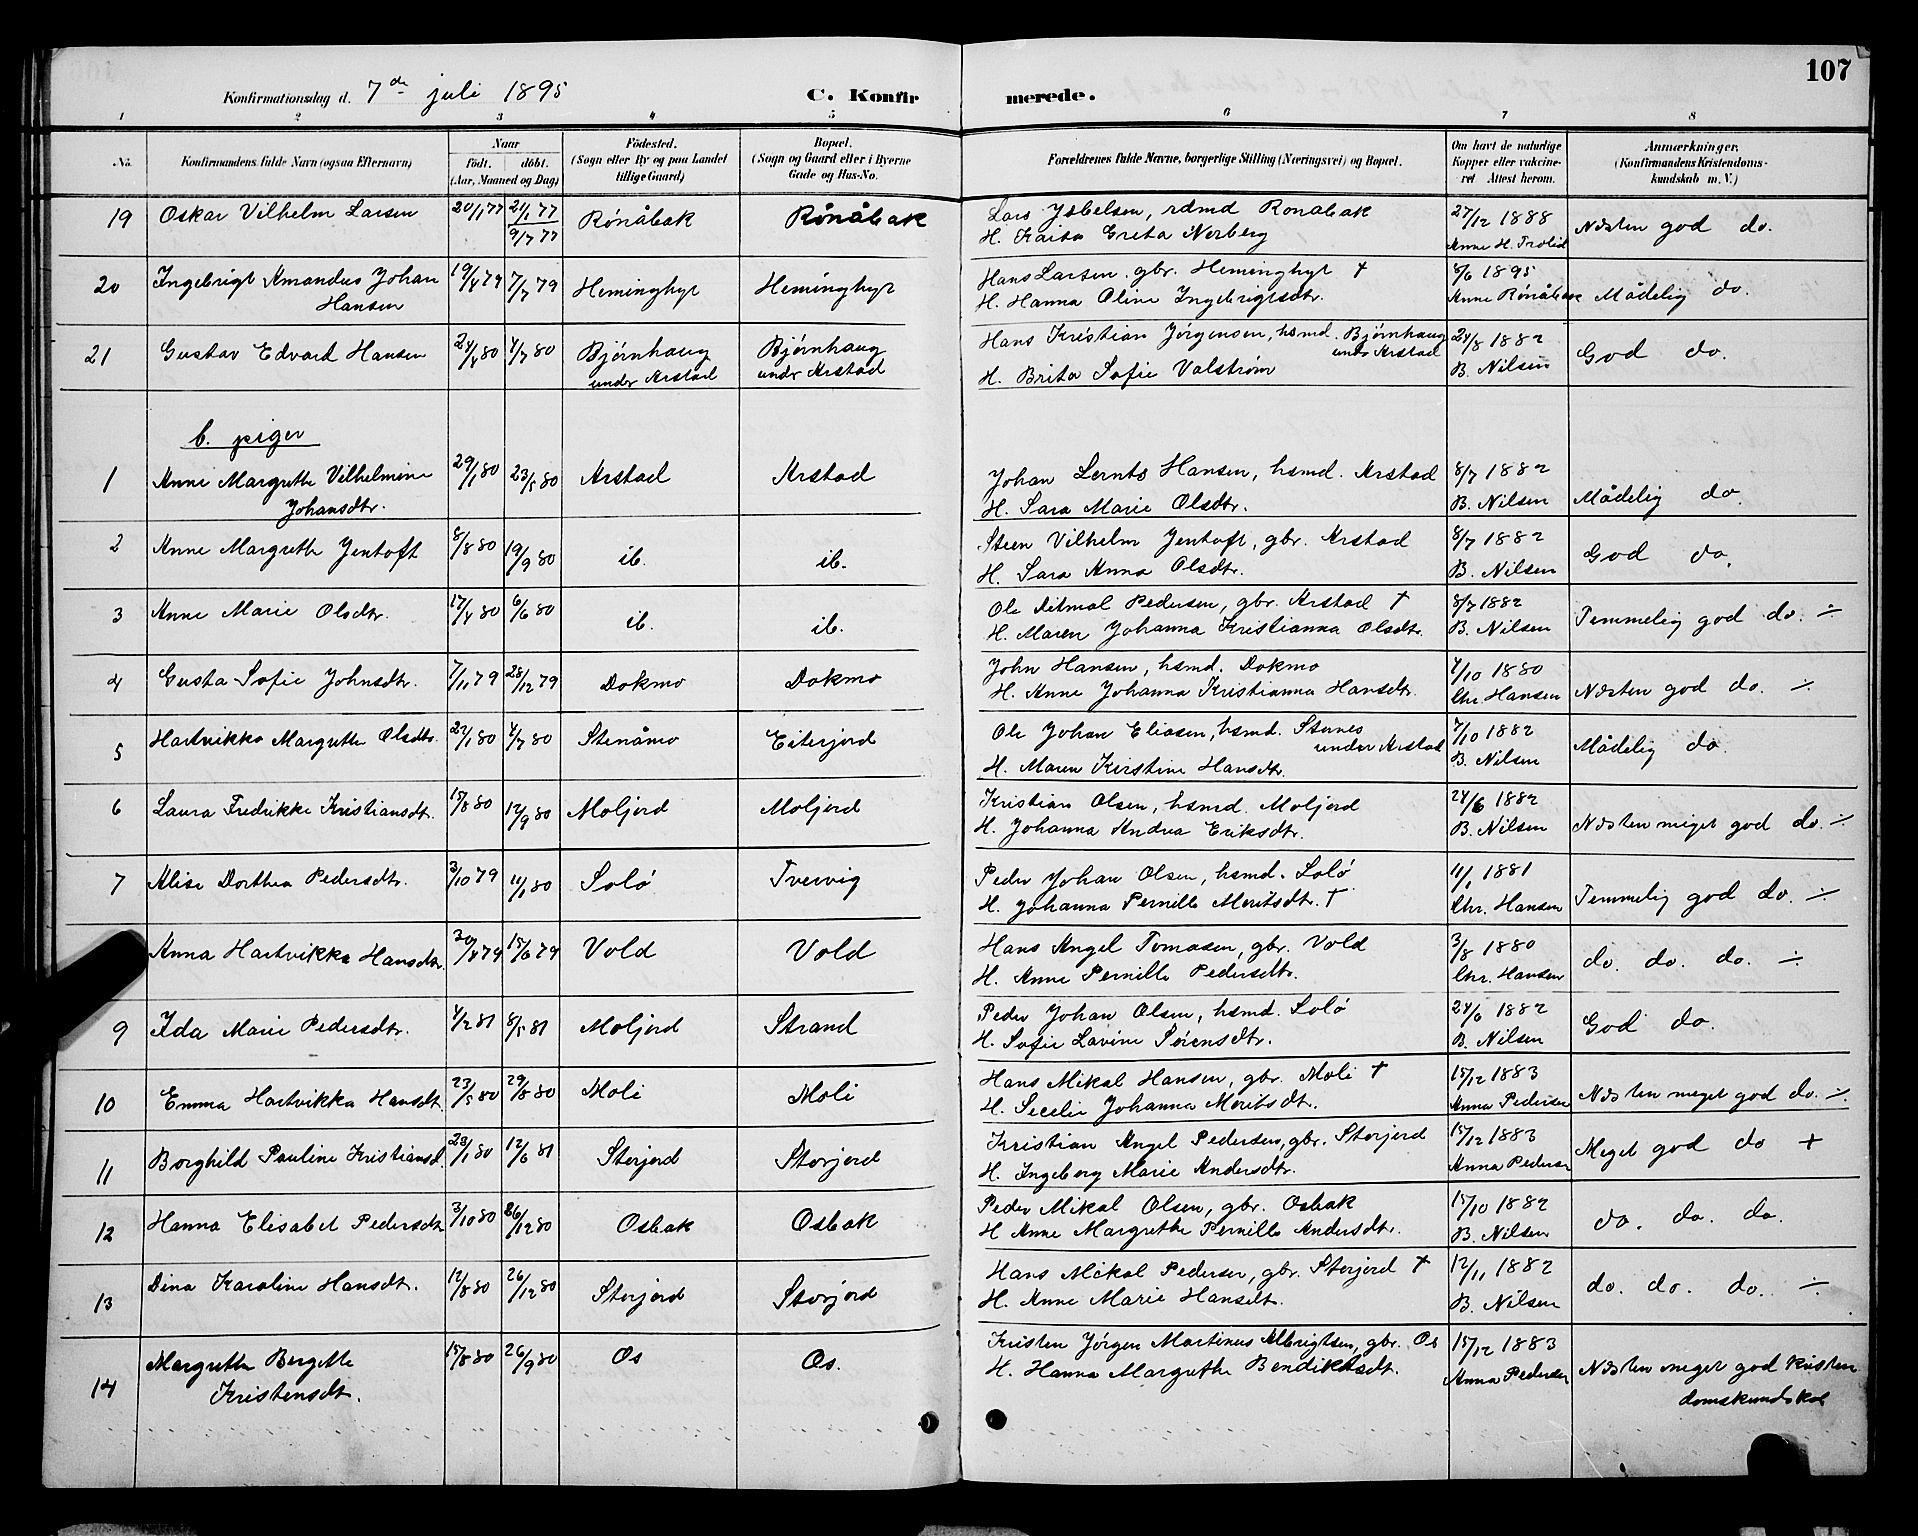 107
Konfirmationsdag d. 7de juli 1895 C. Konfir merede.
1 2 3 4 5 6 7 8
No. Konfirmandens fulde Navn (ogsaa Efternavn) Naar födt. döbt. (Aar, Maaned og Dag) Födested. (Sogn eller By og paa Landet tillige Gaard) Bopæl. (Sogn og Gaard eller i Byerne Gade og Hus-No. Forældrenes fulde Navne, borgerlige Stilling (Næringsvei) og Bopæl. Om havt de naturlige Kopper eller vakcineret Attest herom. Anmærkninger. (Konfirmandens Kristendomskundskab m. V.)
19 Oskar Vilhelm Larsen 20/1 77 21/1 77 Rönåbak Rönåbak Lars Ysbelsen, rdmd Ronabak 27/12 1888 Næsten god do.
9/7 77 H. Kaisa Greta Norberg Anne H. Trolid
20 Ingebrigt Amandus Johan 19/4 79 7/7 79 Heminghyt Heminghyt Hans Larsen gbr. Heminghyt † 8/6 1895 Mådelig do.
Hansen H. Hanna Oline Ingebrigtsdtr. Anne Rönåbak
21 Gustav Edvard Hansen 24/4 80 4/7 80 Bjørnhaug Bjørnhaug Hans Kristian Jörgensen, hsmd. Bjørnhaug 24/8 1882 God do.
under Arstad under Arstad under Arstad
H. Brita Sofie Valstrøm B. Nilsen
b. piger
1 Anne Margrethe Vilhelmine 29/1 80 23/5 80 Arstad Arstad Johan Lernts Hansen, hsmd. Arstad 8/7 1882 Mådelig do.
Johansdtr. H. Sara Marie Olsdtr. B. Nilsen
2 Anne Margrethe Jentoft 8/8 80 19/9 80 ib. ib. Steen Vilhelm Jentoft, gbr. Arstad 8/7 1882 God do.
H. Sara Anna Olsdtr. B. Nilsen
3 Anne Marie Olsdtr. 17/4 80 6/6 80 ib. ib. Ole Ditmal Pedersen, gbr. Arstad † 8/7 1882 Temmelig god do. ÷
H. Maren Johanna Kristianna Olsdtr. B. Nilsen
4 Gusta Sofie Johnsdtr. 7/11 79 28/12 79 Dokmo Dokmo John Hansen, hsmd. Dokmo 4/10 1880 Næsten god do. ÷
H. Anne Johanna Kristianna Hansdtr. Chr. Hansen
5 Hartvikka Margrethe Olsdtr. 22/1 80 4/7 80 Stenåmo Eiterjord Ole Johan Eliasen, hsmd. Stornes 7/10 1882 Mådelig do.
under Arstad
H. Maren Kirstine Hansdtr. B. Nilsen
6 Laura Fredrikke Kristiansdtr. 15/8 80 12/9 80 Moljord Moljord Kristian Olsen, hsmd. Moljord 24/6 1882 Næsten meget god do. ÷
H. Johanna Andrea Eriksdtr. B. Nilsen
7 Alise Dorthea Pedersdtr. 3/10 79 11/1 80 Solö Tvervig Peder Johan Olsen, hsmd. Solö 11/1 1881 Temmelig god do. ÷
H. Johanna Pernille Moritsdtr. † Chr. Hansen
Anna Hartvikka Hansdtr. 30/4 79 15/6 79 Vold Vold Hans Angel Tomasen, gbr. Vold 3/8 1880 do. do. do. ÷
H. Anne Pernille Pedersdtr. Chr. Hansen
9 Ida Marie Pedersdtr. 4/2 81 8/5 81 Moljord Strand Peder Johan Olsen, hsmd. Solö 24/6 1882 God do.
H. Sofie Lavine Sörensdtr. B. Nilsen
10 Emma Hartvikka Hansdt. 23/5 80 29/8 80 Moli Moli Hans Mikal Hansen, gbr. Moli † 15/12 1883 Næsten meget god do. ÷
H. Secelie Johanna Moritsdtr. Anna Pedersen
11 Borghild Pauline Kristiansd. 23/1 80 12/6 81 Storjord Storjord Kristian Angel Pedersen, gbr. Storjord 15/12 1883 Meget god do +
H. Ingeborg Marie Andersdtr. Anna Pedersen
12 Hanna Elisabet Pedersdtr 3/10 80 26/12 80 Osbak Osbak Peder Mikal Olsen, gbr. Osbak 15/10 1882 do. do. do.
H Anne Margrethe Pernille Andersdtr. B. Nilsen
13 Dina Karoline Hansdtr. 12/8 80 26/12 80 Storjord Storjord Hans Mikal Pedersen, gbr. Storjord † 12/11 1882 do. do. do. ÷
H. Anne Marie Hansdt. B. Nilsen
14 Margrethe Bergette 15/8 80 26/9 80 Os Os. Kristen Jörgen Martinus Albrigtsen, gbr. Os 15/12 1883 Næsten meget god kristen
Kristensdt. H. Hanna Margrethe Bendiktsdt. Anna Pedersen domskundskab